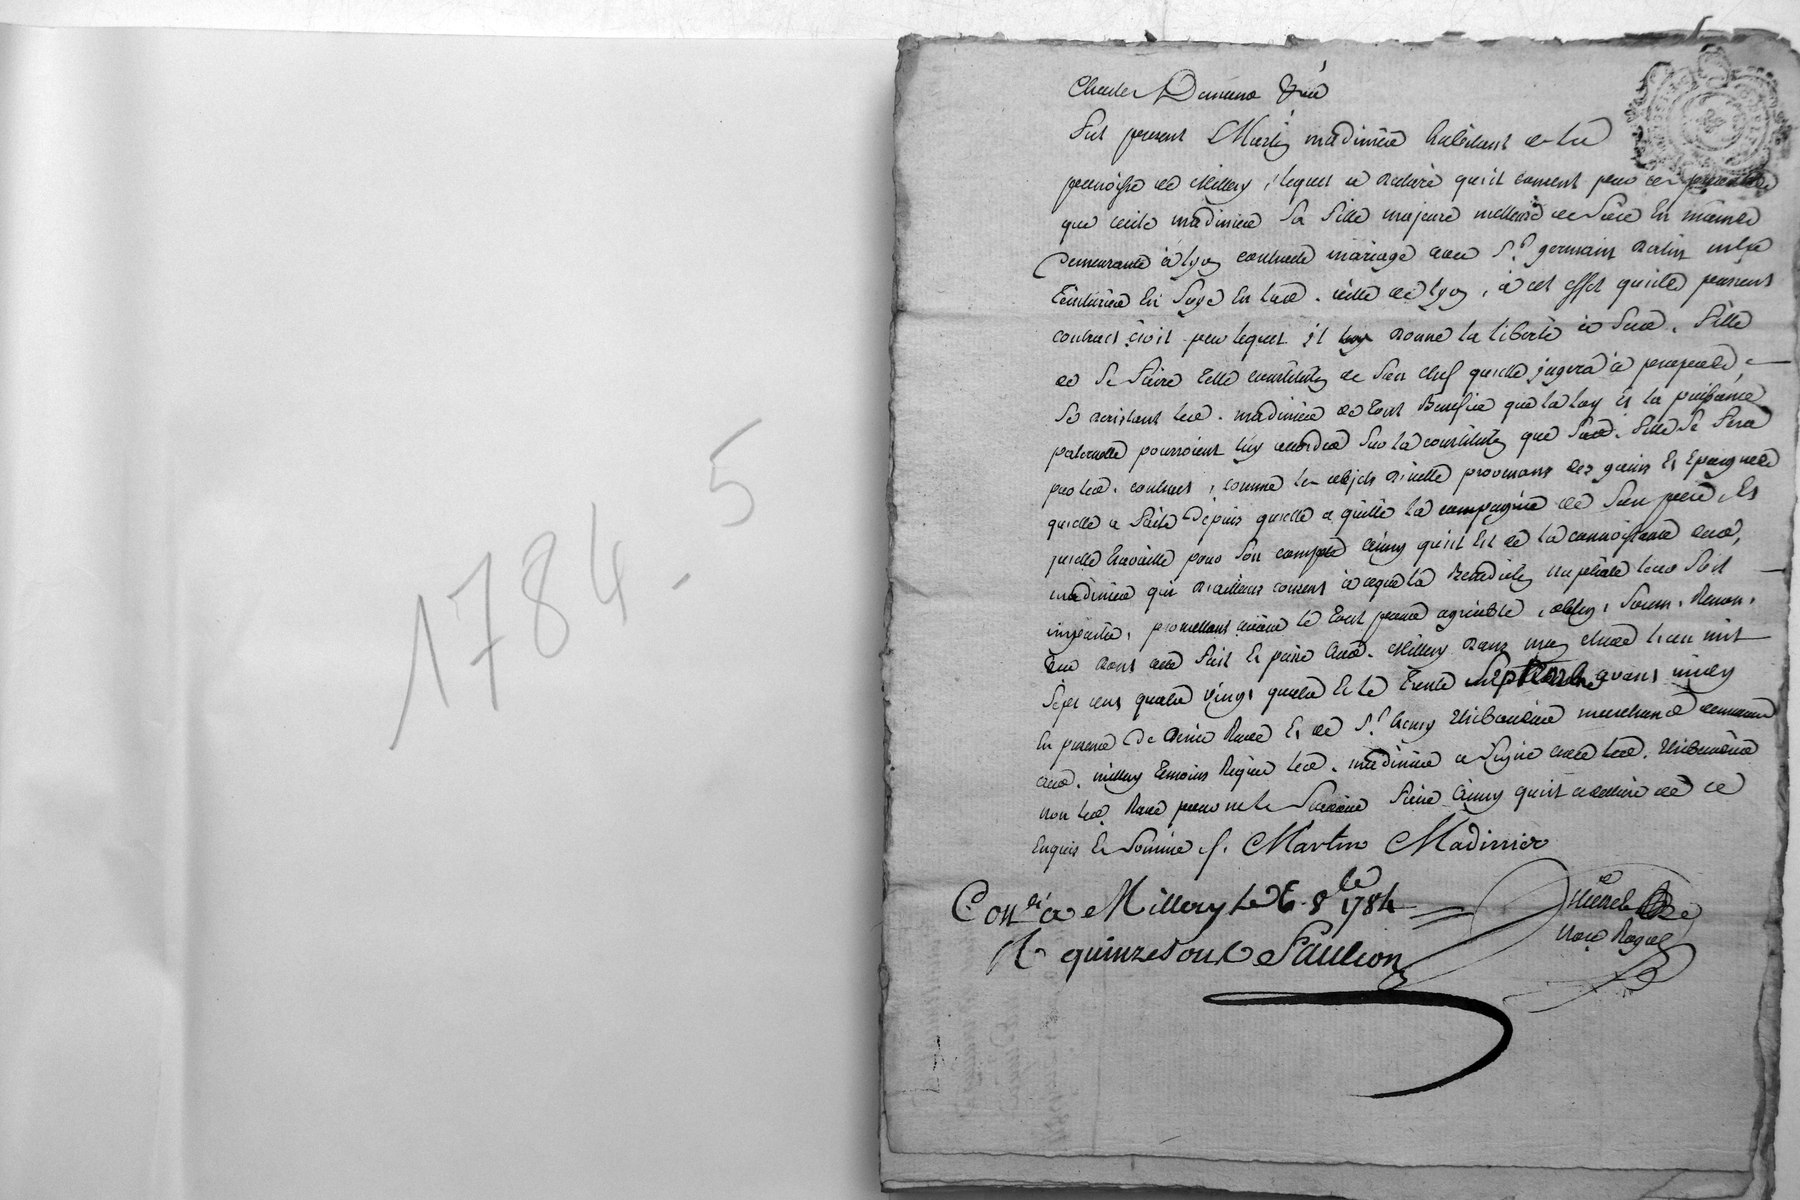 1784-5
Fut present Martin madinier habitant de la
paroisse de Millery, lequel a declaré qu'il consent par ces presentes
que cecile madinier sa fille majeure metteuse de soie en
demeurante à lyon contracte mariage avec Sr. germain mtre
teinturier En Soye En lad. ville de lyon, à cet effet qu'ils passent
contract civil par lequel il donne la liberté à sad. fille
de se faire telle constituton de son chef qu'elle jugera à propos
se led. madinier de tout Benefice que la loy et la puissance
paternelle pourroient luy accorder sur la constituton que sad. fille se fera
par led. contract, comme les objets d'icelle provenans des gains Et Epargnes
qu'elle a faits depuis qu'elle a quitté la compagnie de son pere, Et
qu'elle travaille pour son compte ainsy qu'il Est de la connoissance dud.
madinier qui d'ailleurs consent à ce que la Benediction nuptiale leur soit
impartie, promettans avoir le tout pour agreable, oblig. Soum. Renon.
dont acte fait Et passé aud. Millery dans mon etude l'an mil
Sept cens quatre vingt quatre Et le trente septembre avant midy
En presence de Rave Et de Sr. marchand demeurant
aud. millery temoins Requis led. madinier a Signé avec led.
non led. Rave pour ne le Savoir faire ainsy qu'il a declaré de ce
Enquis Et Sommé ./. Martin Madinier
Conlé à Millery le 6 8bre 1784
R quinze sous Saulcon
Nore Royal